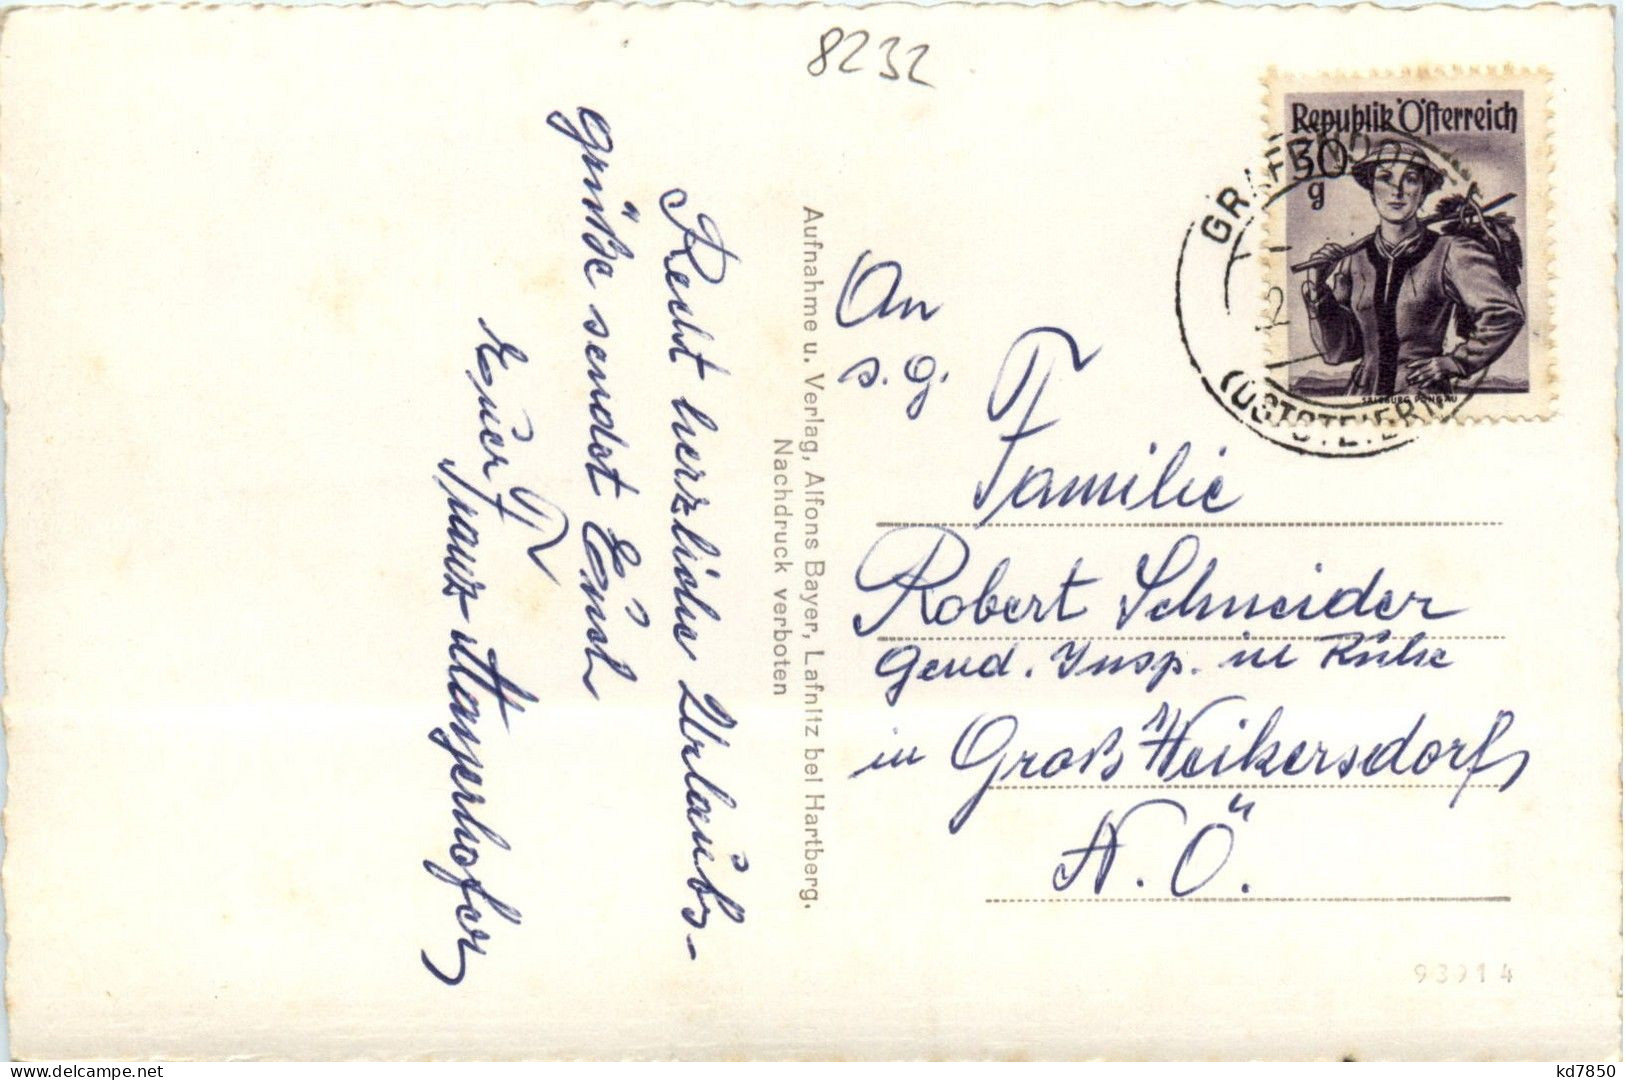 8232
Recht herzliche Urlaubs-
grüße sendet Euch
Euer
Franz Mayerhofer
Aufnahme u. Verlag, Alfons Bayer, Lafnitz bei Hartberg.
Nachdruck verboten
Republik Österreich
30
g
SALZBURG PONGAU
GRAFENDORF
(OSTSTEIERM
An
s. g.
Familie
Robert Schneider
Gend. Insp. in Ruhe
in Groß Weikersdorf
N. Ö.
93914
delcampe.net
kd7850